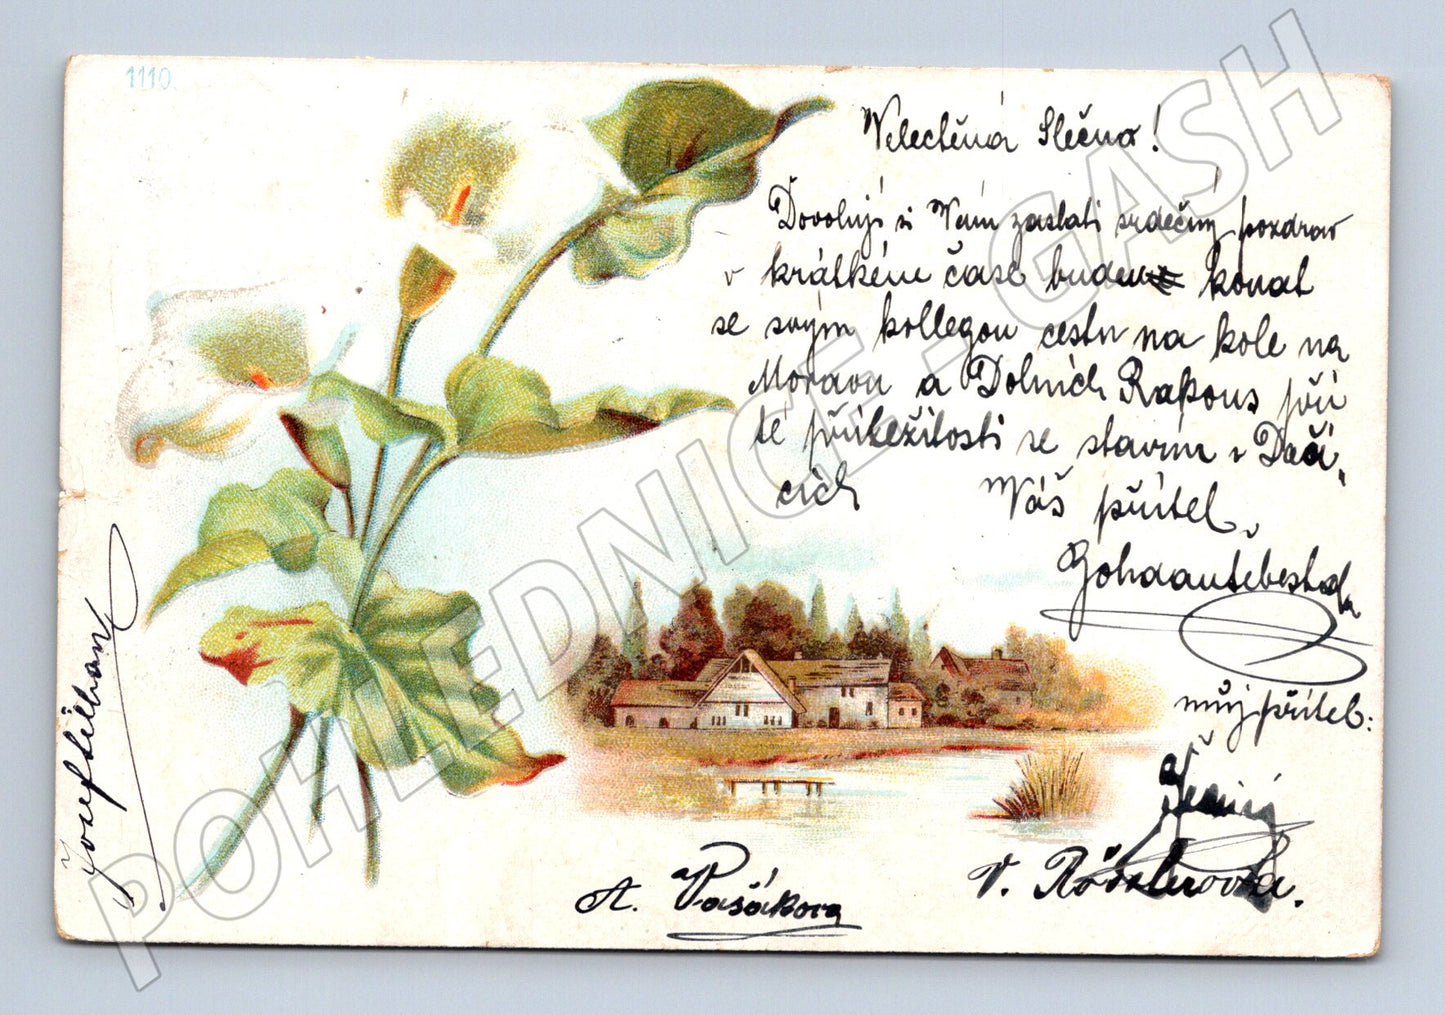 1110.
Velectěná Slečno!
Dovoluji si Vám zaslati srdečný pozdrav
v krátkém čase budem konat
se svým kollegou cestu na kole na
Moravu a Dolních Rakous při
té příležitosti se stavím v Dači,
cích Váš přítel.
můj přítel:
A. Pašákova
V.
Josef
POHLEDNICE - GASH